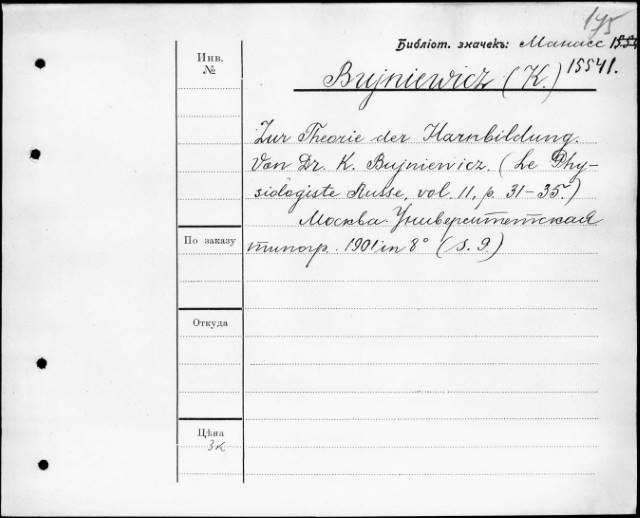 175
Библіот. значекъ: Манасс
15541.
Инв.
№
Bujniewicz (K.)
Zur Theorie der Harnbildung.
Von Dr. K. Bujniewicz. (Le Phy-
siologiste Russe, vol. II, p. 31-35.)
Москва. Университетская
По заказу
типогр. 1901 in 8° (S. 9.)
Откуда
Цѣна
3к